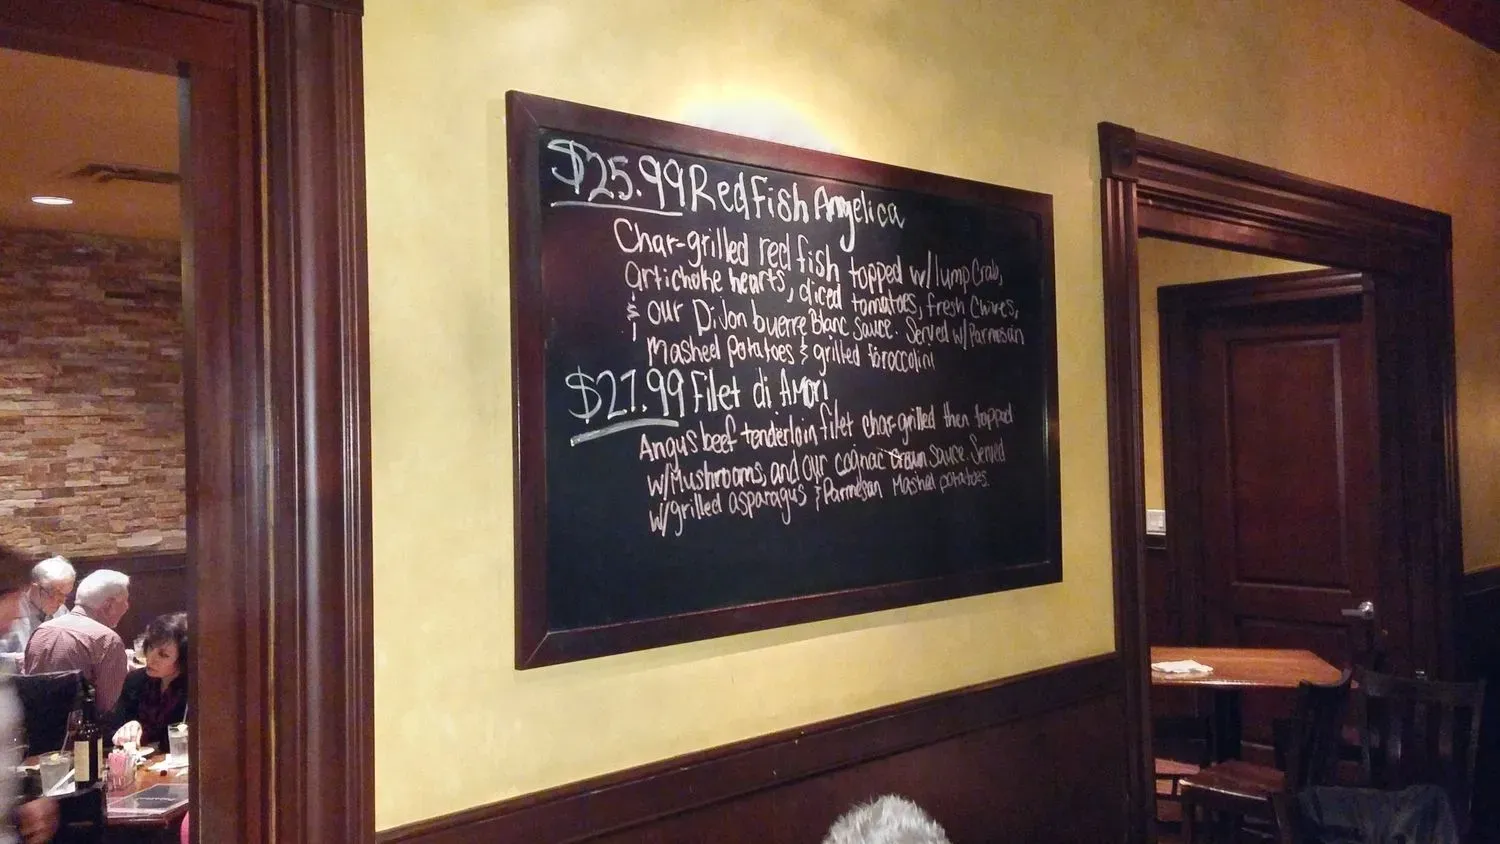 $25.99 Redfish Angelica
Char-grilled red fish topped w/ lump Crab,
artichoke hearts, diced tomatoes, fresh Chives,
& our Dijon buerre Blanc Sauce. Served w/ Parmesan
Mashed Potatoes & grilled broccolini
$27.99 Filet di Amori
Angus beef tenderloin filet char-grilled then topped
w/ Mushrooms, and our cognac Cream Sauce. Served
w/ grilled asparagus & Parmesan Mashed potatoes.